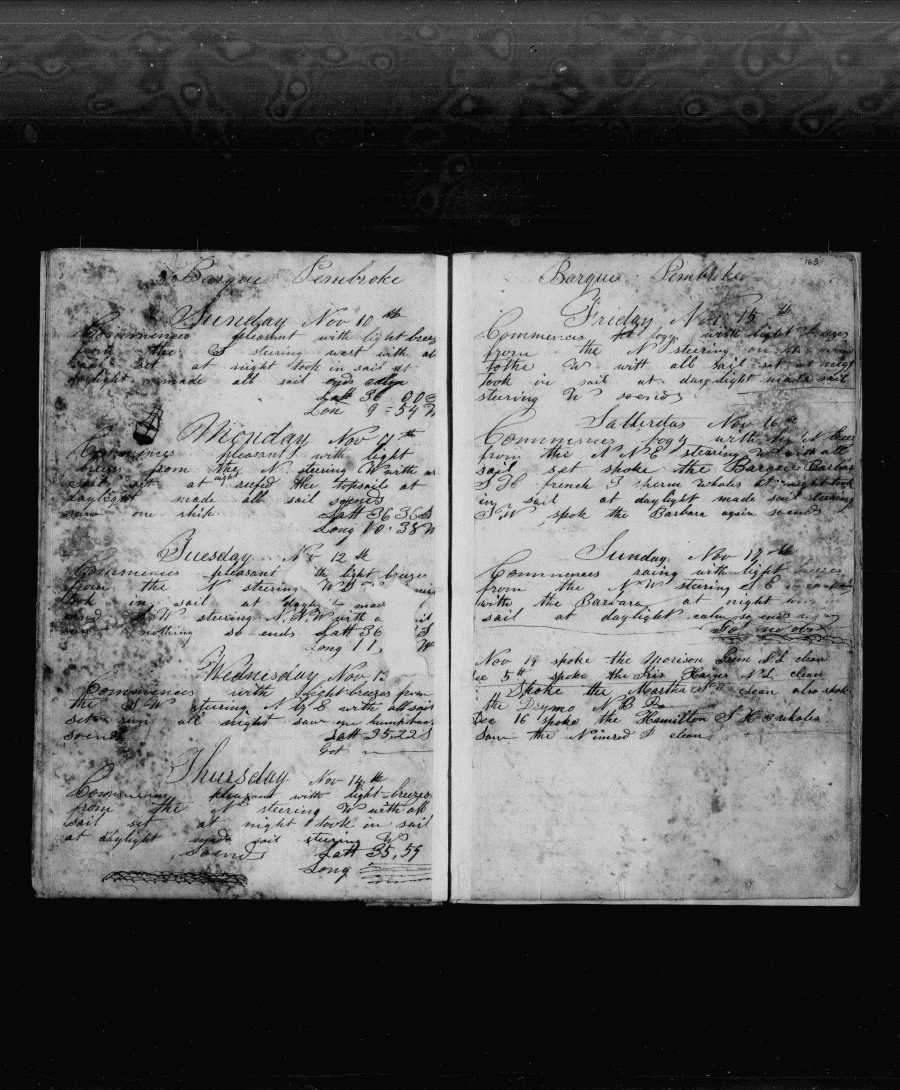 Barque Pembroke
Sunday Nov 10th
Commences pleasant with light breez
from the S steering west with al
sail set at night took in sail at
daylight made all sail
Latt 36 00 S
Lon 9=54 W
Monday Nov 11th
Commences pleasant with light
breezes from the N steering W with a
sail set at night reefd the topsail at
daylight made all sail soends
saw one ship Latt 36 36 S
Long 10.38 W
Tuesday Nov 12th
Commences pleasant light breezes
from the N steering
took in sail at dayli
steering N.N.W with
saw nothing so ends Latt 36 S
Long 11, W
Wednesday Nov 13
Commences with light breezes from
the S W steering N by E with all sail
set all night saw one humpback
soends Latt 35.22 S
Thursday Nov 14th
Commences pleasant with light breezes
from the steering W with all
sail set at night took in sail
at daylight made sail steering W
Soends Latt 35,59
Long
163
Barque Pembroke
Friday Nov 15th
Commences fogy with light breezes
from the N steering on the
tothe W with all sail set at night
took in sail at daylight made sail
steering W soends
Satterdas Nov 16th
Commences fogy with
from the N N E stearing W with all
sail set spoke the Barque Barbar
S H french 3 sperm whales at night took
in sail at daylight made sail stearing
S W spok the Barbara again soends
Sunday Nov 17th
Commences raing with light breezes
from the N W steering S E in
with the Barbara at night
sail at daylight calm so ends
Nov 19 spoke the Morison N L clean
Dec 5th spoke the Iris N L clean
Spoke the Martha clean also spok
the N B
Dec 16 spoke the Hamilton S H 3 whales
Saw the Nimrod clean